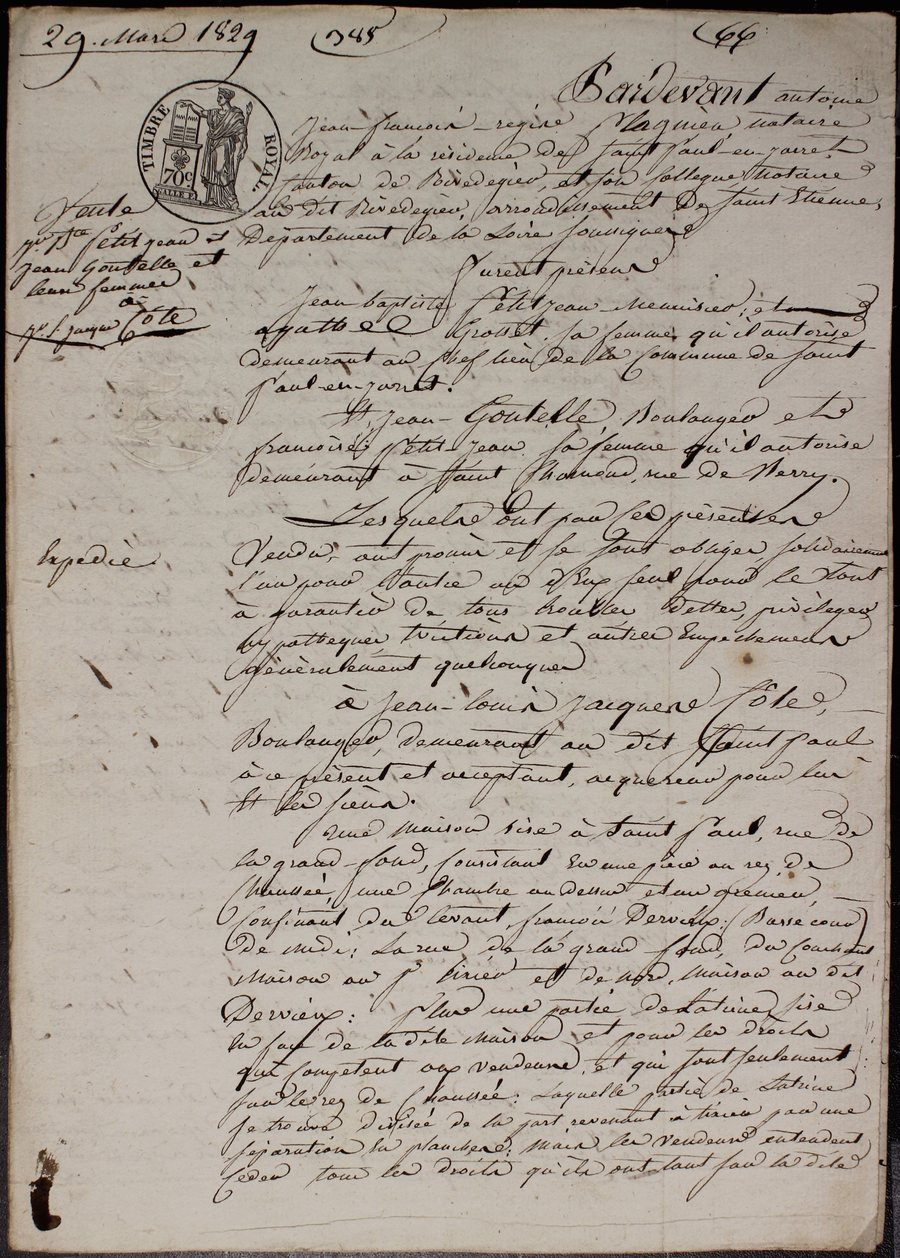 29. Mars 1829
385
66
TIMBRE ROYAL.
70c
Pardevant antoine
jean-françois-régis notaire
Royal à la résidence de Saint Paul-en-jarret
Canton de Rivedegier, et son Collegue Notaire
au dit Rivedegier, arrondissement De Saint Etienne,
Département de la Loire soussignés
Vente
pr. J. Bte Petit jean et
jean Goutelle et
leurs femmes
à
pr. J. jacques Côte
Furent présens
Jean-baptiste Petit Jean Menuisier, et
agathe Crosset sa femme qu'il autorise
demeurant au Chef lieu de la Commune de Saint
Paul-en-jarret.
Et, Jean-Goutelle, Boulanger et
françoise Petit-Jean sa femme qu'il autorise
demeurant à Saint Chamond, rue de Berry.
Lesquels ont par ces présentes
Expediée
Vendu, ont promis et se sont obligés, solidairement
l'un pour l'autre un d'Eux seul pour le tout
à garantir de tous troubles Dettes, privileges
hypotheques évictions et autres Empechemens
généralement quelconques
à Jean-Louis Jacques Côte,
Boulanger, demeurant au dit Saint Paul
à ce présent et acceptant, acquereur pour lui
Et les siens.
Une Maison sise à Saint Paul, rue de
la grand-fond, Consistant En une pièce au rez de
Chaussée, une Chambre au dessus et un grenier,
Confinant du levant, françois Dervieux: (Basse cour)
De midi: La rue de la grand fond, du Couchant
Maison au Sr. tirier et de nord, Maison au dit
Dervieux: Plus une partie de Latrine sise
de la dite Maison et pour les droits
qui Competent aux vendeurs, et qui sont seulement
sur le rez de Chaussée: Laquelle partie de Latrine
se trouve divisée de la part revenant à tirier par une
séparation En planches: Mais les vendeurs entendent
Ceder tous les droits qu'ils ont tant sur la dite